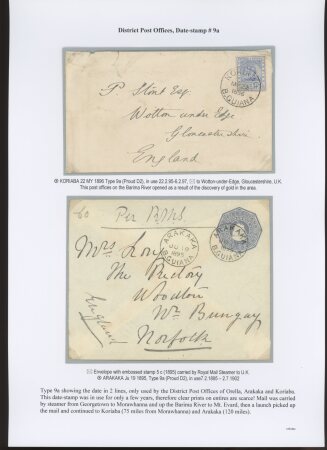 District Post Offices, Date-stamp # 9a
KORIABA
MY 22
1896
B.GUIANA
P. Stout Esq.
Wotton under Edge
Gloucestershire
England
⊗ KORIABA 22 MY 1896 Type 9a (Proud D2), in use 22.2.95-6.2.97, ✉ to Wotton-under-Edge, Gloucestershire, U.K.
This post offices on the Barima River opened as a result of the discovery of gold in the area.
Per R.M.S.
ARAKAKA
JU 19
1895
B.GUIANA
ARAKAKA
B.GUIANA
Mrs Long
The Rectory
Woodton
Nr. Bungay
Norfolk
England
✉ Envelope with embossed stamp 5 c (1895) carried by Royal Mail Steamer to U.K.
⊗ ARAKAKA Ju 19 1895. Type 9a (Proud D2), in use7.2.1895 - 2.7.1902
Type 9a showing the date in 2 lines, only used by the District Post Offices of Orella, Arakaka and Koriaba.
This date-stamp was in use for only a few years, therefore clear prints on entires are scarce! Mail was carried
by steamer from Georgetown to Morawhanna and up the Barima River to Mt. Evard, then a launch picked up
the mail and continued to Koriaba (75 miles from Morawhanna) and Arakaka (120 miles).